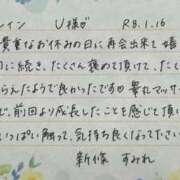 イン U様 R8.1.16
貴重なお休みの日に再会出来て嬉
に続き、たくさん褒めて頂けて、たく
らえたようで良かったです 睾丸マッサ
で、前回より成長したことを感じて頂け
いっぱい触って、気持ち良くなってさい
新條 すみれ